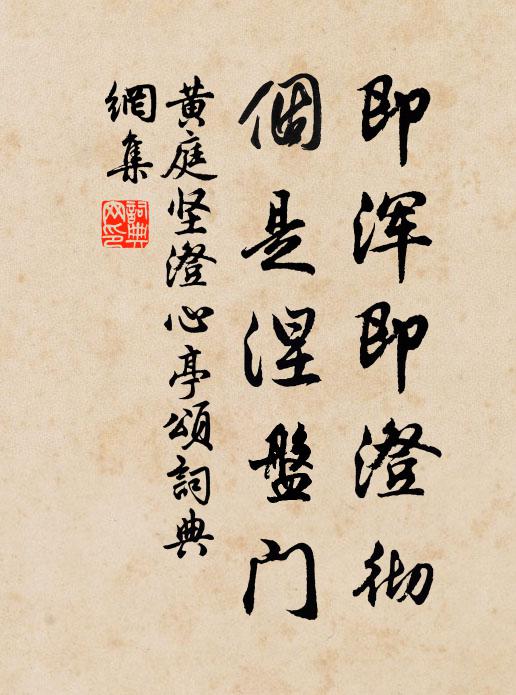 即浑即澄彻
個是涅盤门
黄庭坚澄心亭頌詞典
網集
詞典
网印